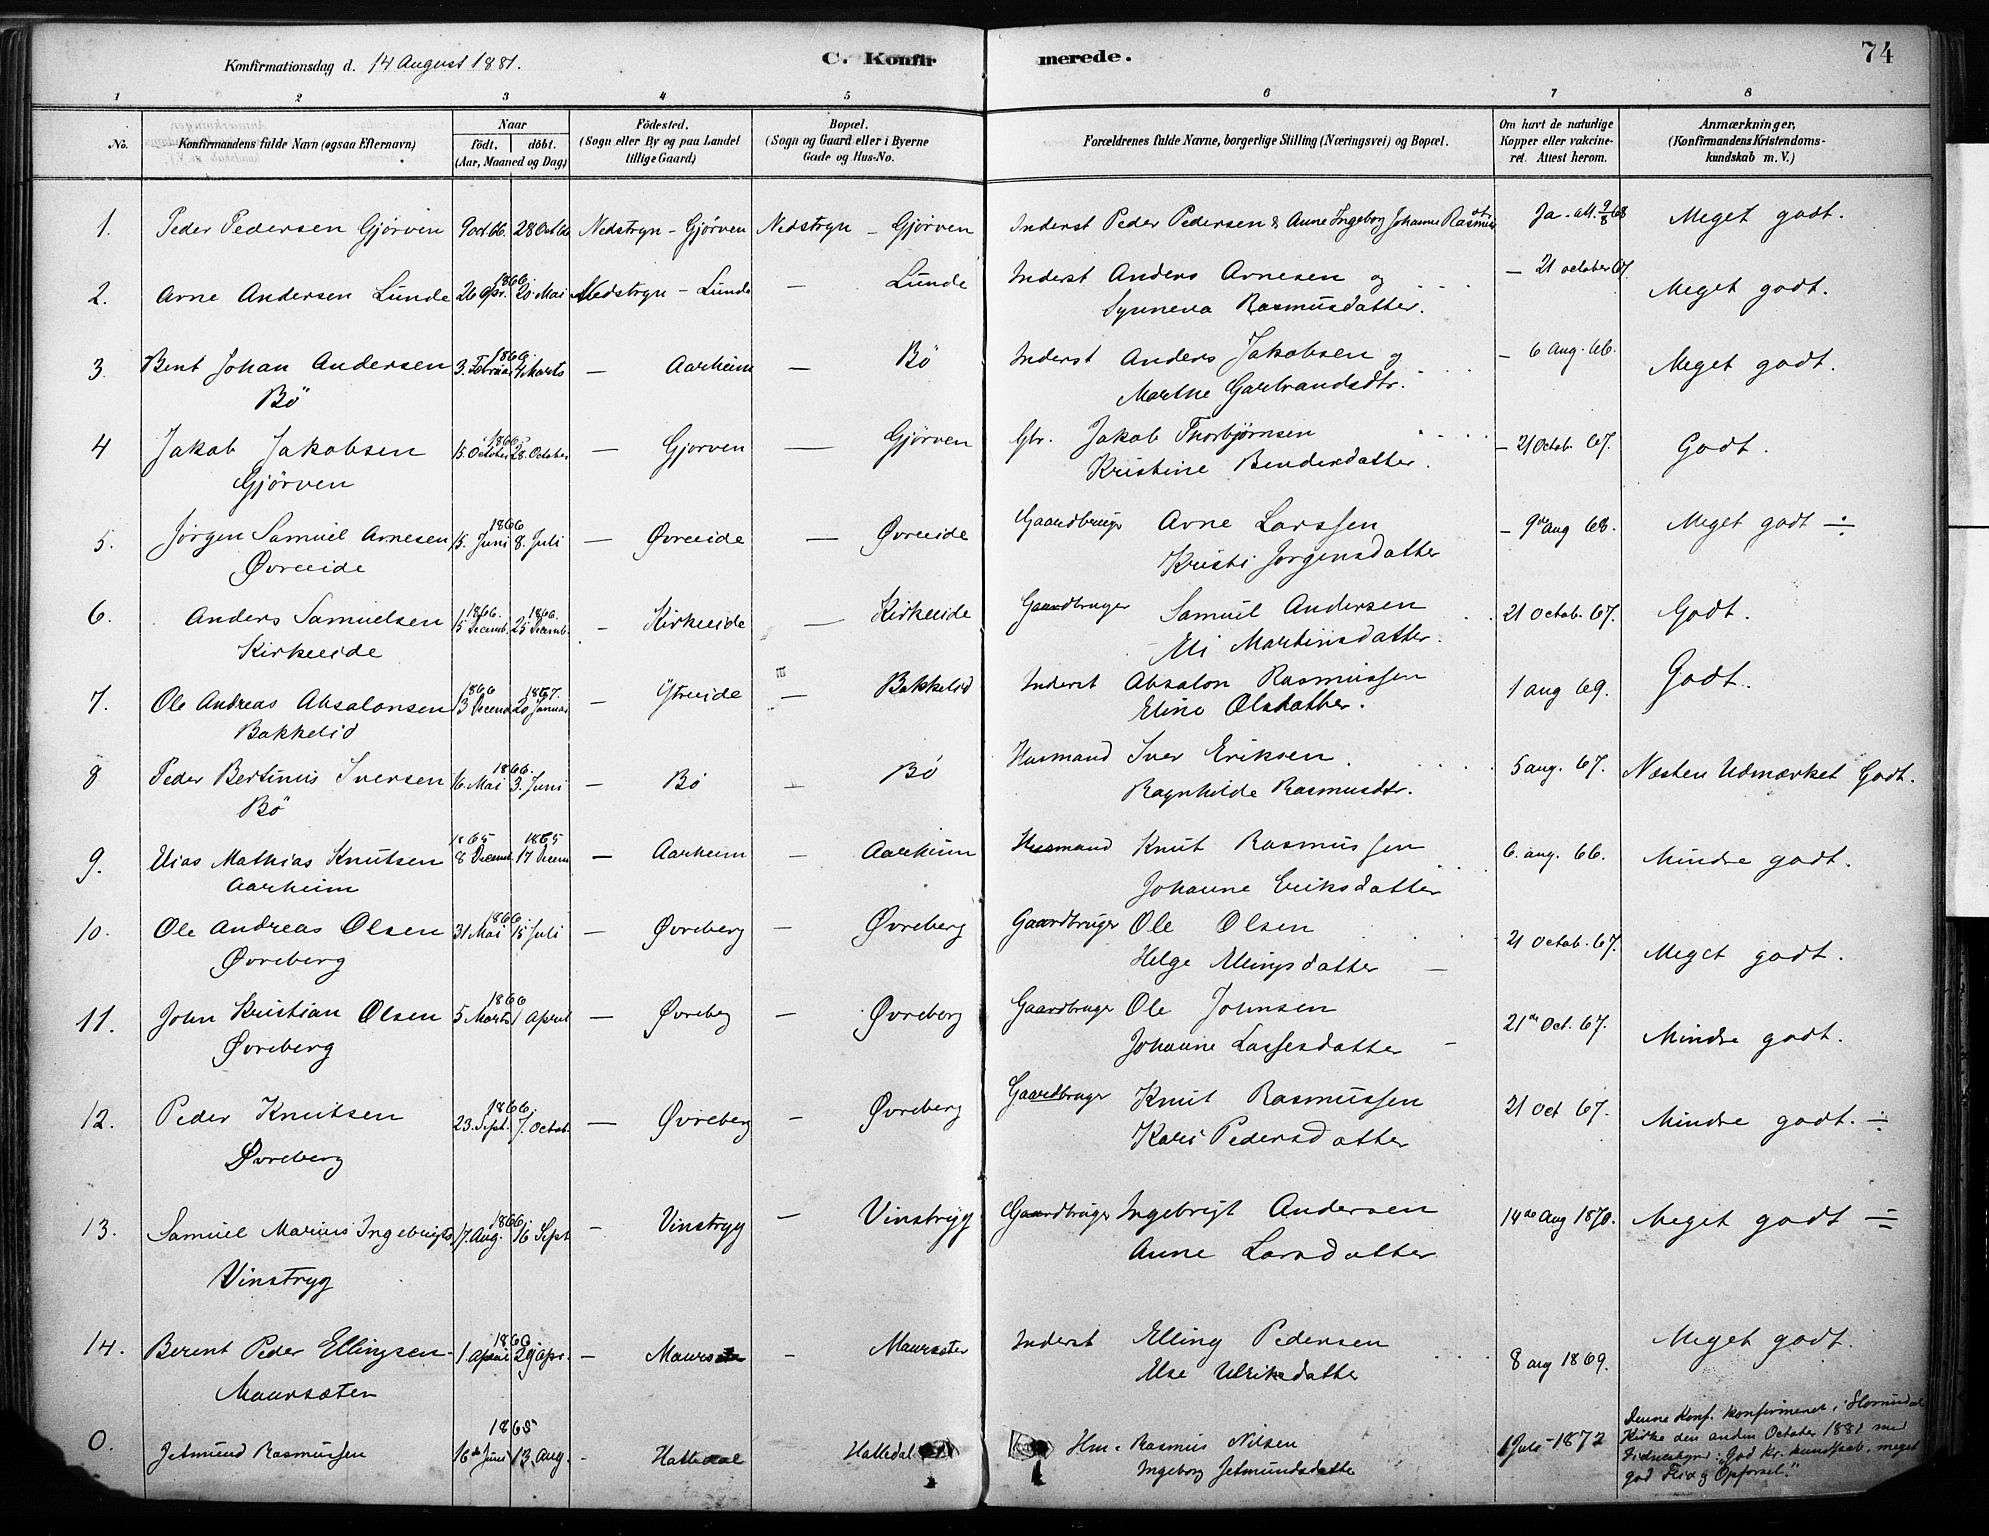 Konfirmationsdag d. 14 August 1881.
C. Konfirmerede.
74
1 2 3 4 5 6 7 8
No.
Konfirmandens fulde Navn (ogsaa Efternavn)
Naar
født. døbt.
(Aar, Maaned og Dag)
Fødested.
(Sogn eller By og paa Landet
tillige Gaard)
Bopæl.
(Sogn og Gaard eller i Byerne
Gade og Hus-No.
Forældrenes fulde Navne, borgerlige Stilling (Næringsvei) og Bopæl.
Om havt de naturlige
Kopper eller vakcine-
ret. Attest herom.
Anmærkninger,
(Konfirmandens Kristendoms-
kundskab m. V.)
1. Peder Pedersen Gjørven 9 Oct 66. 28 Oct 66 Nedstryn - Gjørven Nedstryn - Gjørven Inderst Peder Pedersen & Anne Ingeborg Johanne Rasmusdtr. Ja - att. 9/8 68 Meget godt.
2. Arne Andersen Lunde 1866 26 Apr. 20 Mai Nedstryn - Lunde — Lunde Inderst Anders Arnesen og — 21 october 67. Meget godt.
Synneva Rasmusdatter.
3. Bent Johan Andersen 1866. 3. Februar 4 Marts — Aarheim — Bö Inderst Anders Jakobsen og — 6 Aug. 66. Meget godt.
Bö Marthe Garbrandsdtr.
4 Jakob Jakobsen 1866. 15. October 28. October — Gjorven — Gjørven Gbr. Jakob Thorbjørnsen — 21 Octob. 67. Godt.
Gjørven Kristine Bendixdatter.
5. Jørgen Samuel Arnesen 1866 15. Juni 8. Juli — Øvreeide — Øvreeide Gaardbruger Arne Larssen — 9de aug 68. Meget godt ÷
Øvreeide Kristi Jørgensdatter
6. Anders Samuelsen 1866. 15 Decemb. 1866. 25 Decemb. — Kirkeeide — Kirkeeide Gaardbruger Samuel Andersen 21 Octob. 67. Godt.
Kirkeeide Eli Martinsdatter.
7. Ole Andreas Absalonsen 1866 13 Decemb 1867. 20 Januar — Ytreeide — Bakkelid Inderst Absalon Rasmussen 1 aug 69. Godt.
Bakkelid Eline Olsdatter.
8 Peder Bertinus Iversen 1866. 16. Mai 3. Juni — Bö — Bö Husmand Iver Eriksen. 5 aug. 67. Næsten Udmærket Godt.
Bö Ragnhilde Rasmusdtr.
9. Elias Mathias Knutsen 1865 8 Decemb. 1865 17 Decem — Aarheim — Aarheim Husmand Knut Rasmussen 6. aug. 66. Mindre godt.
Aarheim Johanne Eriksdatter
10. Ole Andreas Olsen 1866. 31 Mai 15 Juli — Øvreberg — Øvreberg Gaardbruger Ole Olsen 21 Octob. 67. Meget godt.
Øvreberg Helge Ellingsdatter —
11. John Kristian Olsen 1866 5 Marts 1 April — Øvreberg — Øvreberg Gaardbruger Ole Johnsen 21de Oct. 67. Mindre godt.
Øvreberg Johanne Lassesdatter —
12. Peder Knutsen 1866. 23. Sept. 7. Octob. — Øvreberg — Øvreberg Gaardbruger Knut Rasmussen 21 Oct 67. Mindre godt. ÷
Øvreberg Kari Pedersdatter
13. Samuel Marius Ingebrigts 1866 17. Aug. 16 Sept — Vinstryg — Vinstryg Gaardbruger Ingebrigt Andersen 14de Aug 1870. Meget godt ÷
Vinstryg Anne Larsdatter
14. Berent Peder Ellingsen 1866 1. April 29 Apr. — Maursæter — Maursæter Inderst Elling Pedersen 8 aug 1869. Meget godt.
Maursæter Else Ulriksdatter
0. Jetmund Rasmussen 1865 16de Juni 13. Aug. — Hatledal Hatledal Hm. Rasmus Nilsen 1 Juli 1872 Denne Konf. konfirmeret i Hornindal
Ingeborg Jetmundsdatter Kirke den anden October 1881 med
Vidnesbyrd: "God Kr. kundskab, meget
god Flid og Opførsel."